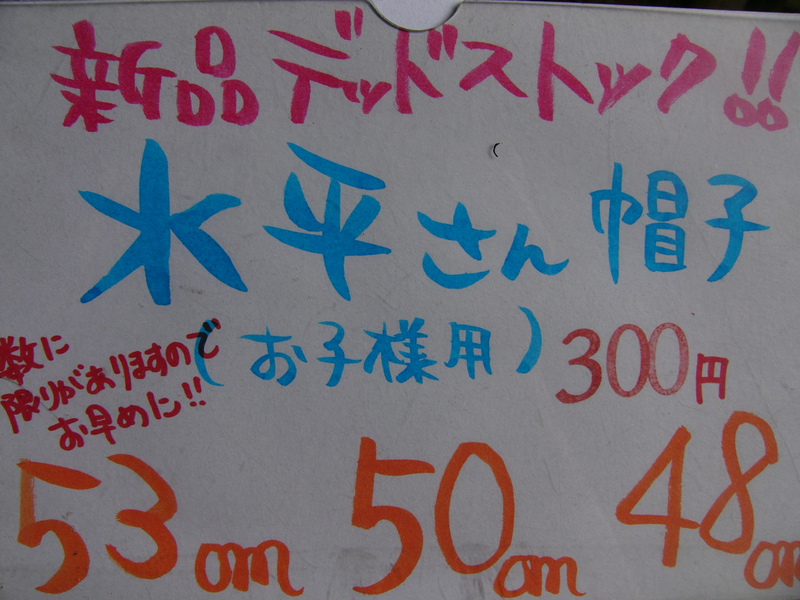 新品デッドストック!!
水平さん帽子
(お子様用)300円
数に
限りがありますので
お早めに!!
53cm 50cm 48cm